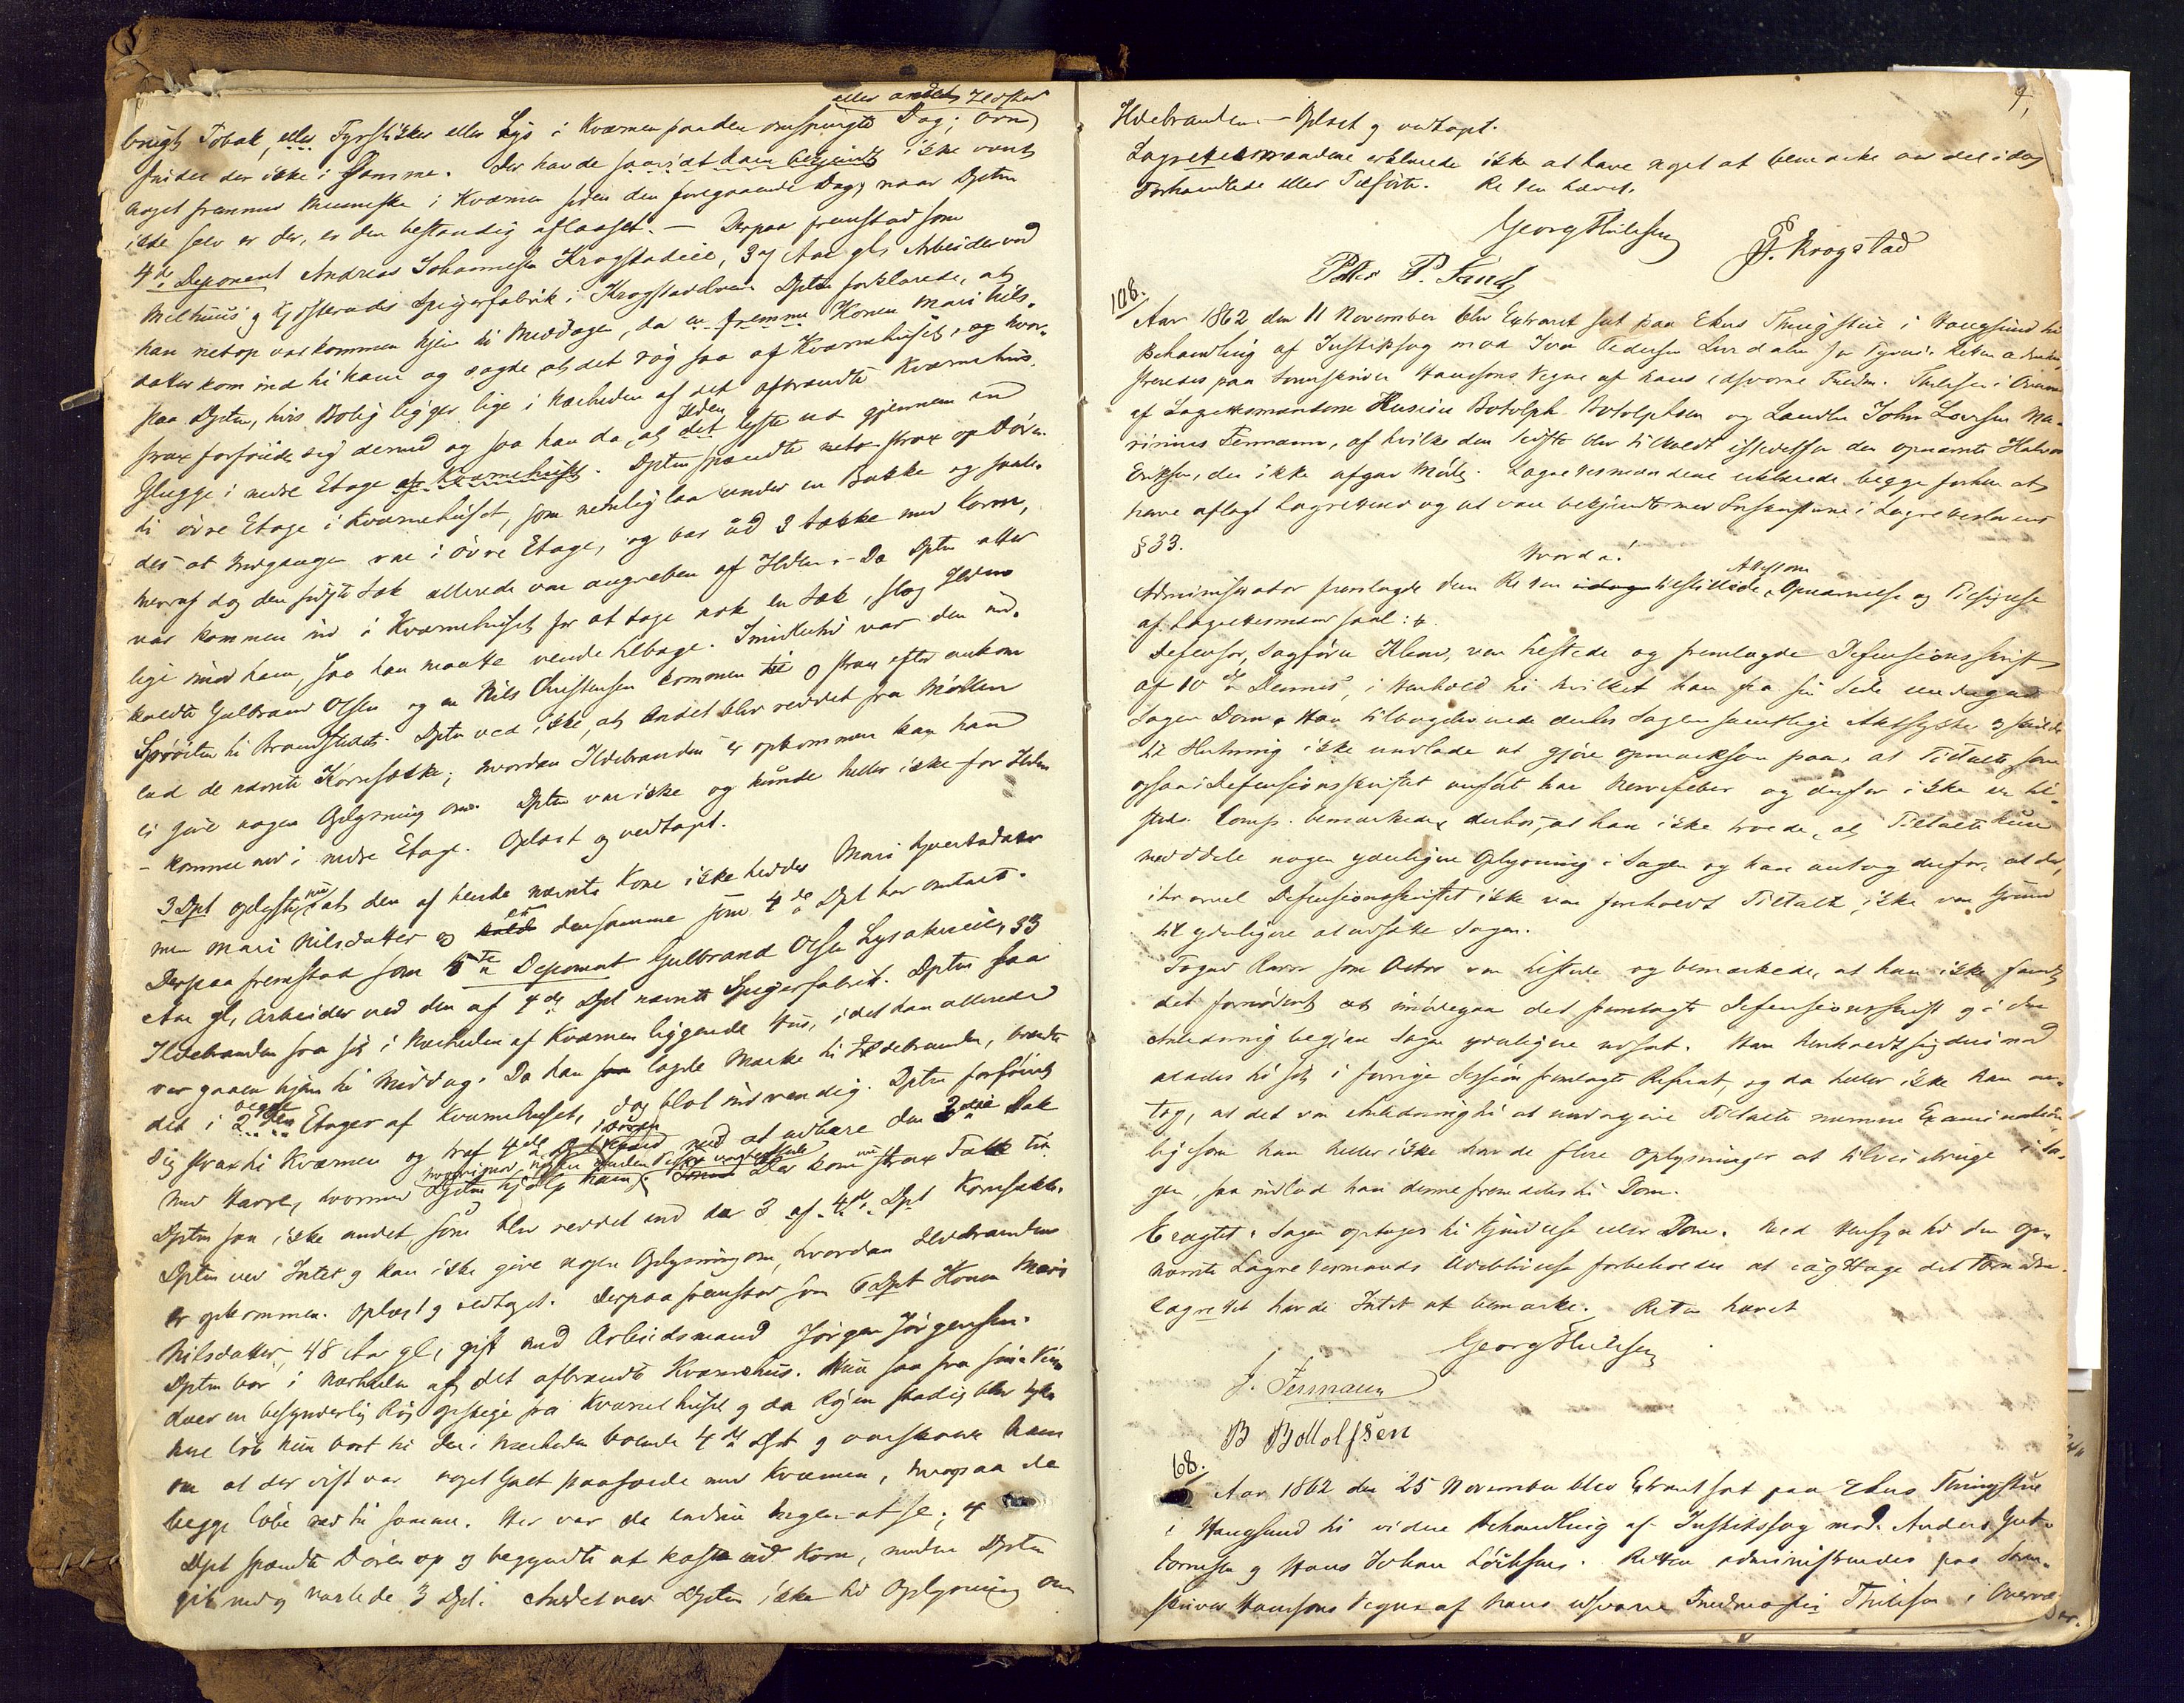 eller andet Ildsted
brugt Tobak, eller Fyrstikker eller Lys i Kværnen paa den omspurgte Dag; Ovn
findes der ikke i Samme. Der havde saavidt ham bekjendt ikke været
noget fremmed Menneske i Kværnen siden den foregaaende Dag, naar Dptn
ikke selv er der, er den bestandig aflaaset. — Derpaa fremstod som
4de Deponent Andreas Johannesen Krogstadeie, 37 Aar gl. Arbeider ved
Melhuus' og Gjøsteruds Spigerfabrik i Krogstadelven Dptn forklarede, at
han netop var kommen hjem til Middagen, da en fremme Konen Mari Nils-
datter kom ind til ham og sagde at det røg saa af Kværnehuset, og hvor-
paa Dptn, hvis Bolig ligger lige i Nærheden af det afbrændte Kværnehus,
strax forføiede sig derned og saa han da, at det Ilden lyste ud gjennem en
Glugge i nedre Etage af Kværnehuset. Dptn spændte strax op Døren
til øvre Etage i Kværnehuset, som nemlig laa under en Bakke og saale-
des at Indgangen var i øvre Etage, og bar ud 3 Sække med Korn,
hvoraf dog den sidste Sæk allerede var angreben af Ilden. — Da Dptn atter
var kommen ind i Kværnehuset for at tage nok en Sæk, slog Ilden
lige imod ham, saa han maatte vende tilbage. Imidlertid var den ind-
kaldte Gulbrand Olsen og en Nils Christensen kommen til og strax efter ankom
Sprøiten til Brandstedet. Dptn ved ikke, at Andet blev reddet fra Møllen
end de nævnte Kornsække; hvordan Ildebranden er opkommen kan han
ei give nogen Oplysning om. Dptn var ikke og kunde heller ikke for Ilden
- komme ned i nedre Etage. Oplæst og vedtaget.
3 Dpt oplyste nu at den af hende nævnte Kone ikke hedder Mari Gjertsdatter
men Mari Nilsdatter og er densamme som 4de Dpt har omtalt.
Derpaa fremstod som 5te Deponent Gulbrand Olsen Lysakereie, 33
Aar gl, Arbeider ved den af 4de Dpt nævnte Spigerfabrik. Dptn saa
Ildebranden fra sit i Nærheden af Kværnen liggende Hus, idet han allerede
var gaaen hjem til Middag. Da han lagde Mærke til Ildebranden, brændte
det i begge Etager af Kværnehuset, dog blot indvendig. Dptn forføiede
sig strax til Kværnen og traf 4de Dpt med at udbære den 3die Sæk
med Havre, hvormed Dptn hjalp ham. Der kom nu strax Folk til.
Dptn saa ikke andet, som blev reddet end de 3 af 4de Dpt Kornsække.
Dptn ved Intet og kan ikke give nogen Oplysning om, hvordan Ildebranden
er opkommen. Oplæst og vedtaget. Derpaa fremstod som 6 Dpt Konen Mari
Nilsdatter, 48 Aar gl, gift med Arbeidsmand Jørgen Jørgensen.
Dptn bor i Nærheden af det afbrændte Kværnehus. Hun saa fra sine Vin-
duer en besynderlig Røg opstige fra Kværnehuset og da Røgen stadig blev tyk-
kere løb hun bort til den i Nærheden boende 4de Dpt og varskoede ham
om at der vist var noget Galt paafærde med Kværnen, hvorpaa de
begge løbe ned til samme. Her var da endnu Ingen at se; 4
Dpt spændte Døren op og begyndte at kaste ud Korn, medens Dptn
gik ned og varslede 3 Dpt. Andet ved Dptn ikke til Oplysning om
4,
Ildebranden. — Oplæst og vedtaget.
Lagrettesmændene erklærede ikke at have noget at bemærke ved det i dag
Forhandlede eller Tilførte. Retten hævet.
Georg Thilesen
P. Krogstad
Peder P. Sand
108.
Aar 1862 den 11 November blev Extraret sat paa Ekers Thingstue i Haugsund til
Behandling af Justitssag mod Iver Pedersen Lurdalen for Tyveri. Retten admini-
streredes paa Sorenskriver Hansons Vegne af hans edsvorne Fuldm. Thilesen i Overvær
af Lagrettesmændene Huseier Botolph Botolphsen og Landhr. John Larsen Ma-
rinius Fermann, af hvilke den sidste blev tilkaldt istedetfor den opnævnte Halvor
Eriksen, der ikke afgav Møde. Lagrettesmændene erklærede begge forhen at
have aflagt Lagretteed og at være bekjendte med Forskrifterne i Lagretteslovens
§ 33.
Hvorda!
Administrator fremlagde den Retten tilstillede Attesterede Opnævnelse og Tilsigelse
af Lagrettesmænd saal: 4.
Defensor, Sagfører Klem, var tilstede og fremlagde Defensionsskrift
af 10de Dennes, i Henhold til hvilket han fra sin Side undergav
Sagen Dom. Han tilbageleverede derhos Sagens samtlige Aktstykker og skulde
til Slutning ikke undlade at gjøre opmærksom paa, at Tiltalte som
ogsaa i Defensionsskriftet anført har Nervefeber og derfor ikke er til-
stede. Comp. bemærkede derhos, at han ikke troede, at Tiltalte kunde
meddele nogen yderligere Oplysning i Sagen og han antog derfor, at der,
ihvorvel Defensionsskriftet ikke var foreholdt Tiltalte, ikke var Grund
til yderligere at udsætte Sagen.
Foged Ravn som Actor var tilstede og bemærkede, at han ikke fandt
det fornødent at imødegaa det fremlagte Defensionsskrift og i den
Anledning begjære Sagen yderligere udsat. Han henholdt sig derimod
aldeles til sit i forrige Session fremlagte Referat, og da heller ikke han an-
tog, at det var Anledning til at undergive Tiltalte nærmere Examination
ligesom han heller ikke havde flere Oplysninger at tilveiebringe i Sa-
gen, saa indlod han denne fremdeles til Dom.
Eragtet: Sagen optages til Kjendelse eller Dom. Med Hensyn til den op-
nævnte Lagrettesmands Udeblivelse forbeholdes at iagttage det Fornødne.
Lagrettet havde Intet at bemærke. Retten hævet
Georg Thilesen
J. Fermann
B Bottolfsen
68.
Aar 1862 den 25 November blev Extraret sat paa Ekers Thingstue
i Haugsund til videre Behandling af Justitssag mod Anders Gut-
tormsen og Hans Johan Løithsens. Retten administreredes paa Soren-
skriver Hansons Vegne af hans edsvorne Fuldmægtig Thilesen i Overvær